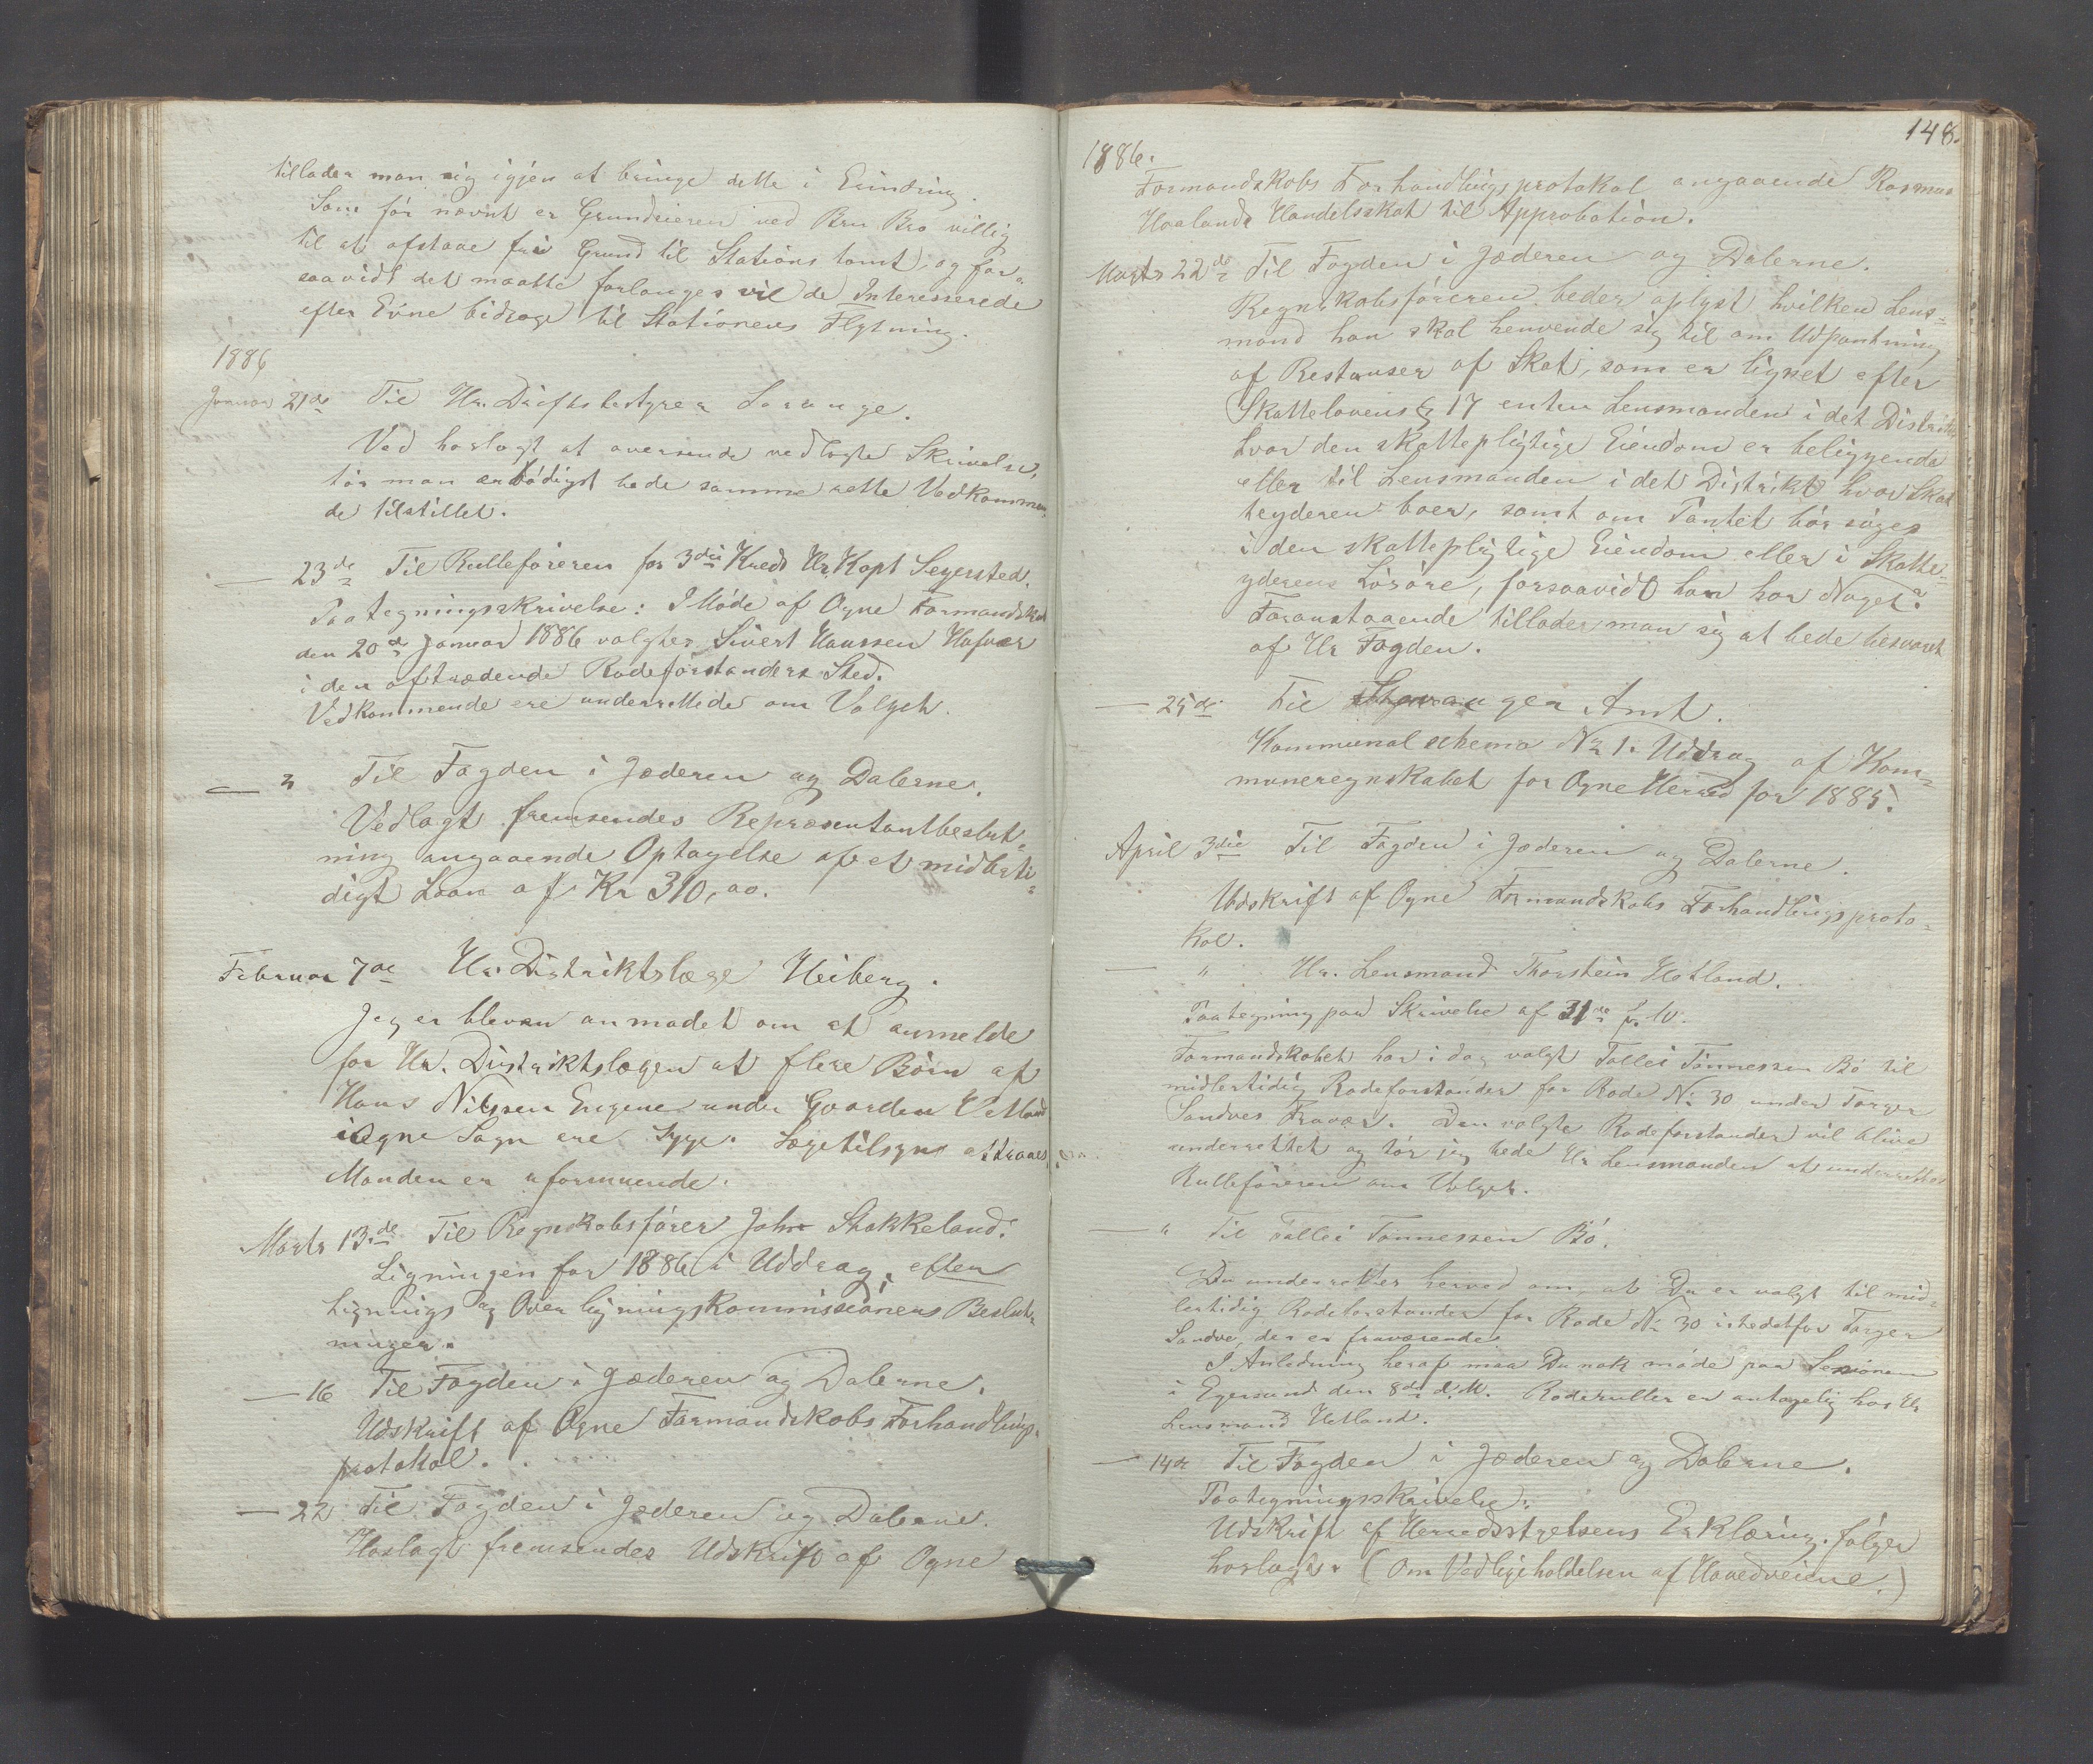 tillader man sig igjen at bringe dette i Erindring.
Som før nævnt er Grundeieren ved Bru Bro villig
til at afstaae fri Grund til Stations tomt, og for-
saavidt det maatte forlanges vil de Interesserede
efter Evne bidrage til Stationens Flytning.
1886
Januar 21de Til Hr. Driftsbestyrer
Ved hoslagt at oversende vedlagte Skrivelse,
tør man ærbødigst bede samme rette Vedkommen
de tilstillet.
— 23de Til Rulleføreren for 3die Kreds Hr. Kapt Segersted.
Paategningsskrivelse: I Møde af Ogne Formandskab
den 20de Januar 1886 valgtes Sivert Hanssen
i den aftrædende Rodeforstanders Sted.
Vedkommende ere underrettede om Valget.
— " Til Fogden i Jæderen og Dalerne.
Vedlagt fremsendes Repræsentantbeslut-
ning angaaende Optagelse af et midlerti-
digt Laan af Kr 310,00.
Februar 7de Hr. Distriktslæge Heiberg.
Jeg er bleven anmodet om at anmelde
for Hr. Distriktslægen at flere Børn af
Hans Nilssen under Gaarden Vetland
i Ogne Sogn ere syge. Lægetilsyn attraaes
Manden er uformuende.
Marts 13.de Til Regnskabsfører John Stokkeland.
Ligningen for 1886 i Uddrag, efter
Lignings og Overligningskommissionens Beslut-
ninger.
— 16 Til Fogden i Jæderen og Dalerne.
Udskrift af Ogne Formandskabs Forhandlings-
protokol.
— 22 Til Fogden i Jæderen og Dalerne.
Hoslagt fremsendes Udskrift af Ogne
148.
1886.
Formandskabs Forhandlingsprotokol angaaende Rasmus
Haalands Handelsskat til Approbation.
Marts 22de Til Fogden i Jæderen og Dalerne.
Regnskabsføreren beder oplyst hvilken Lens-
mand han skal henvende sig til om Udpantning
af Restanser af Skat, som er lignet efter
Skattelovens § 17 enten Lensmanden i det Distrikt
hvor den skattepligtige Eiendom er beliggende
eller til Lensmanden i det Distrikt hvor Skat
teyderen boer, samt om Pantet bør søges
i den skattepligtige Eiendom eller i Skatte-
yderens Løsøre, forsaavidt han har Noget?
Foranstaaende tillader man sig at bede besvaret
af Hr Fogden.
— 25de Til Stavanger Amt.
Kommunalschema No 1. Uddrag af Kom-
muneregnskabet for Ogne Herred for 1885.
April 3die Til Fogden i Jæderen og Dalerne.
Udskrift af Ogne Formandskabs Forhandlingsproto-
kol.
— " Hr. Lensmand Thorstein Hetland.
Paategning paa Skrivelse af 31te f. M.
Formandskabet har i dag valgt Tollei Tønnessen Bø til
midlertidig Rodeforstander for Rode No 30 under Torger
Sandves Fravær. Den valgte Rodeforstander vil blive
underrettet og tør jeg bede Hr Lensmanden at underrette
Rulleføreren om Valget.
— " Til Tollei Tønnessen Bø.
Du underrettes herved om, at Du er valgt til mid-
lertidig Rodeforstander for Rode No 30 istedetfor Torger
Sandve, der er fraværende.
I Anledning heraf maa Du nok møde paa Sessionen
i Egersund den 8de d. M. Roderuller er antagelig hos Hr
Lensmand Hetland.
— 14de Til Fogden i Jæderen og Dalerne.
Paategningsskrivelse:
Udskrift af Herredsstyrelsens Erklæring følger
hoslagt. (Om Vedligeholdelsen af Hovedveiene.)